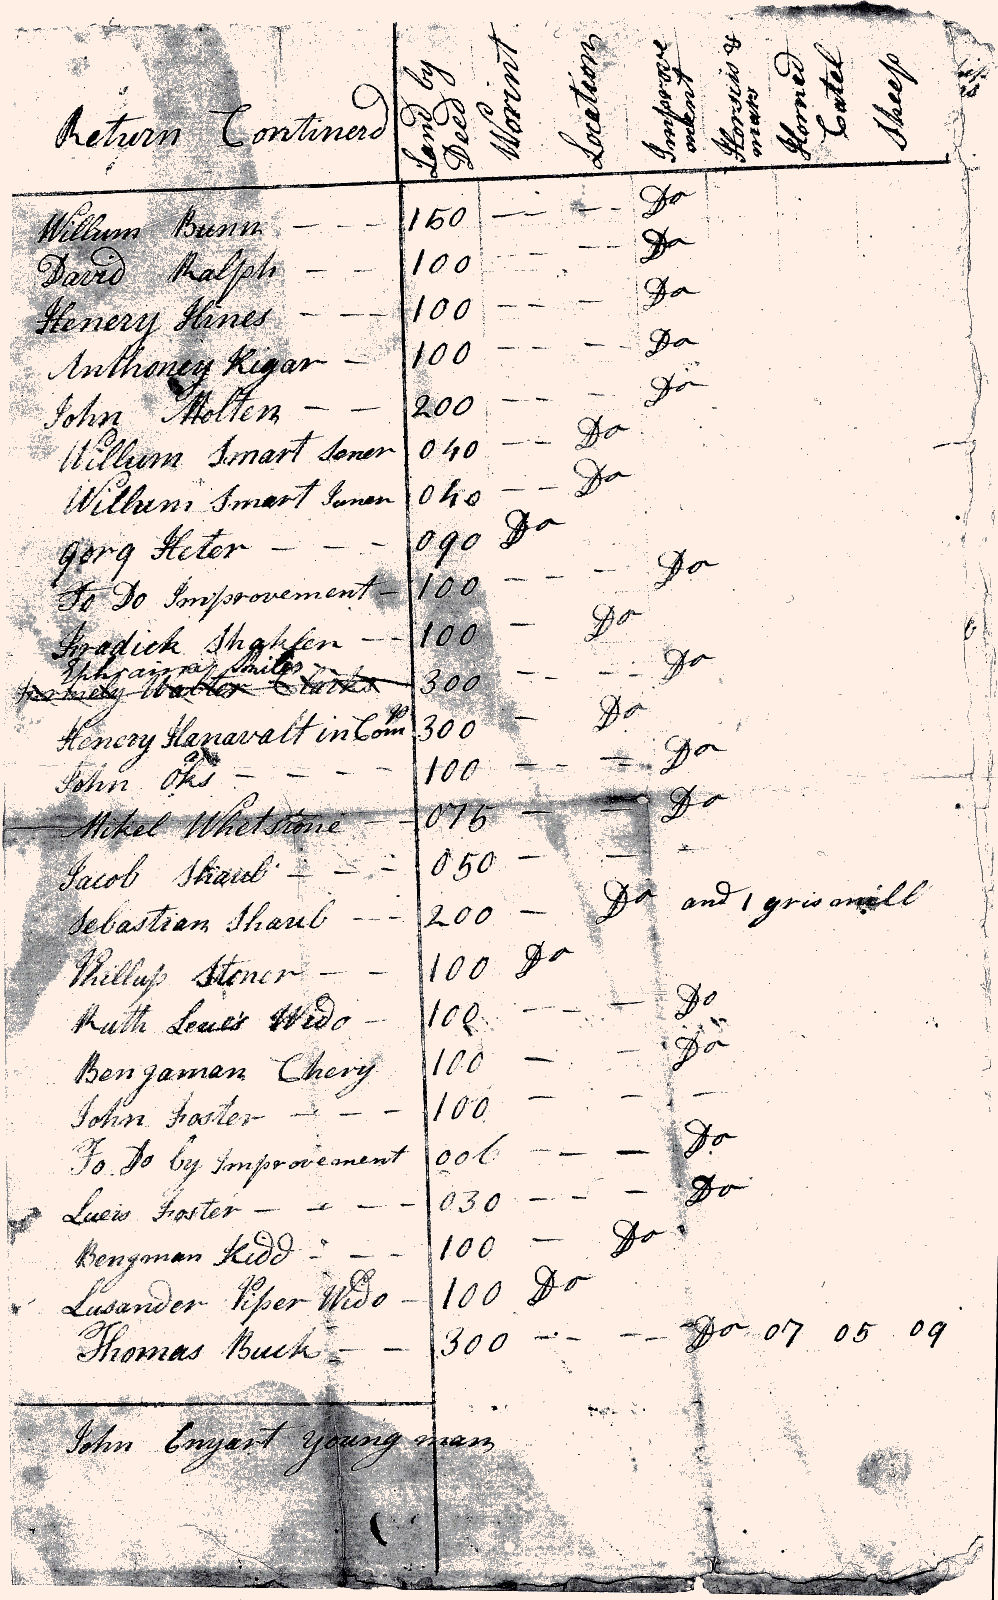 Return Continerd Land by Deed Worint Location Improve ment Horsis & mars Horned Catel Sheep
Willum Bunn 150 Do
David Ralph 100 Do
Henery Hines 100 Do
Anthoney Kigar 100 Do
John Molten 200 Do
Willum Smart Sener 040 Do
Willum Smart Juner 040 Do
gorg Heter 090 Do
To Do Improvement 100 Do
Fradick 100 Do
Ephraim Smiles
formely Walter Clarks 300 Do
Henery Hanavalt in Comp 300 Do
John Oaks 100 Do
Mikel Whetstone 075 Do
Jacob Sharub 050
Sebastian Sharub 200 Do and 1 gris mill
Phillup Stoner 100 Do
Ruth Leueis Wido 100 Do
Bengaman Chery 100 Do
John Foster 100
To Do by Improvement 006 Do
Lueis Foster 030 Do
Bengman Kidd 100 Do
Lusander Piper Wido 100 Do
Thomas Buck 300 Do 07 05 09
John Enyart young man